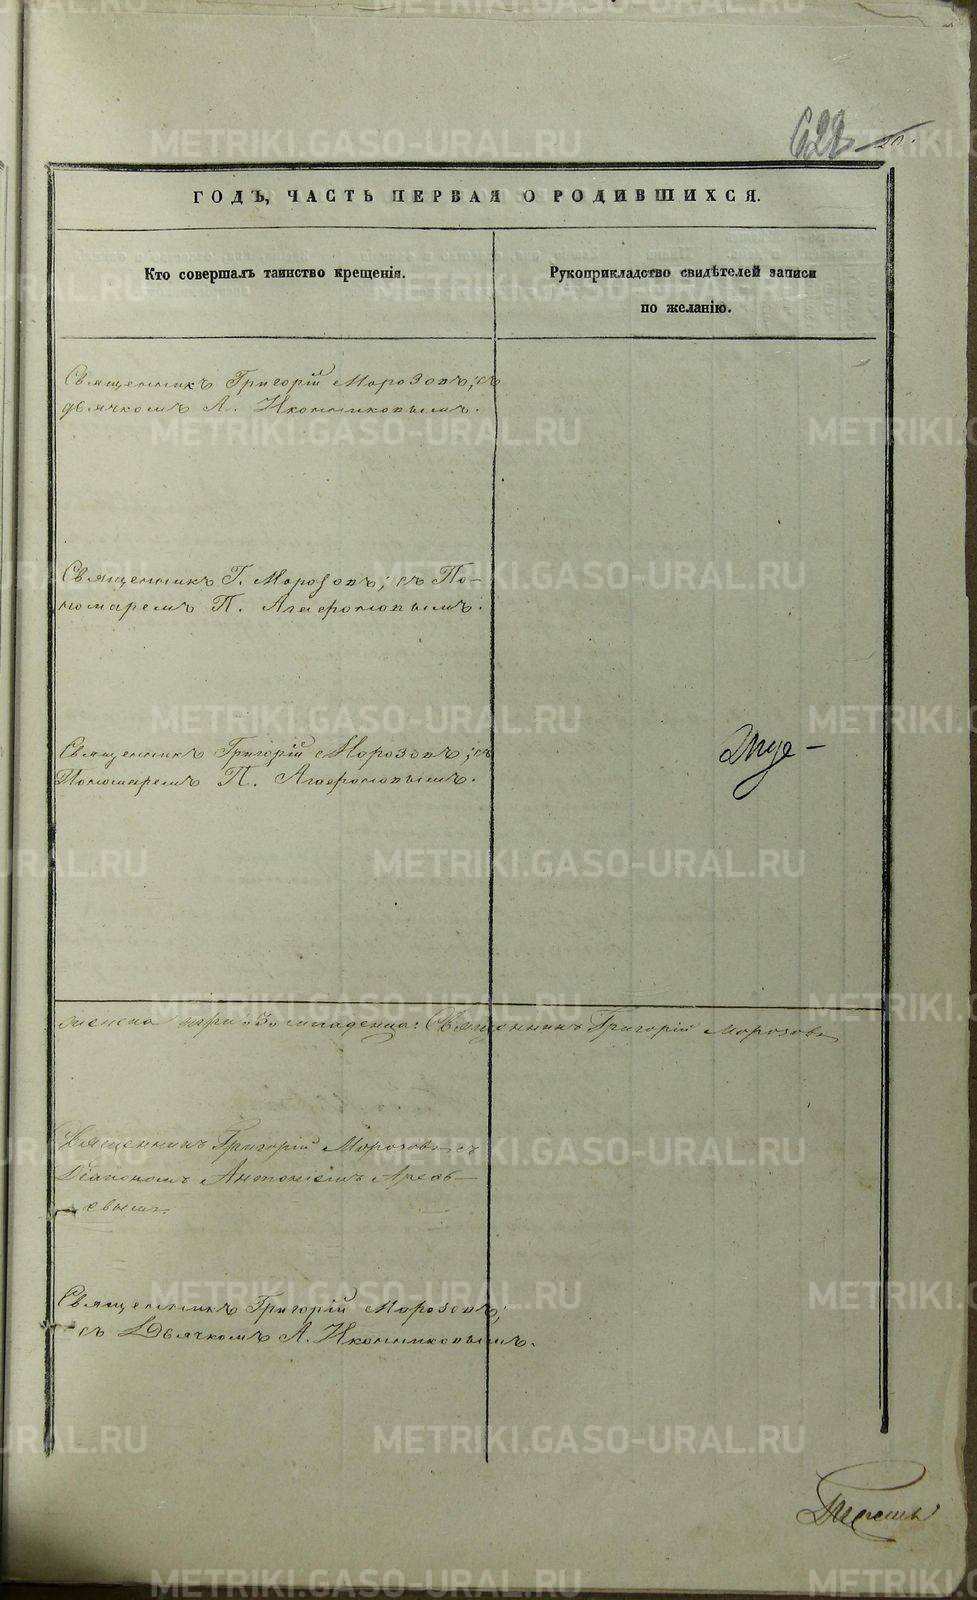 622
20.
ГОДЪ, ЧАСТЬ ПЕРВАЯ О РОДИВШИХСЯ.
Кто совершалъ таинство крещенія.
Рукоприкладство свидѣтелей записи
по желанію.
Священникъ Григорій Морозовъ; съ
дьячкомъ А. Иконниковымъ.
Священникъ Г. Морозовъ; съ По-
номаремъ П. Агафоновымъ.
Священникъ Григорій Морозовъ; съ
Пономаремъ П. Агафоновымъ.
три „3" младенца: Священникъ Григорій Морозовъ
Священникъ Григорій Морозовъ съ
Діакономъ Антоніемъ Ареѳь-
евымъ.
Священникъ Григорій Морозовъ;
съ Дьячкомъ А. Иконниковымъ.
METRIKI.GASO-URAL.RU